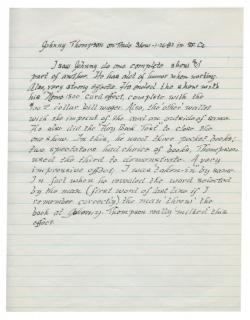 Johnny Thompson on Trade Show - 1-26-83 in
I saw Johnny do one complete show &
part of another. He has alot of humor when working.
Also, very strong effects. He ended the show with
his 1500 Card effect, complete with the
dollar bill wager. Also, the other wallet
with the imprint of the card on outside of same.
He also did the Hoy Book Test to close the
one show. In this, he used three pocket books;
two spectators had choice of books, Thompson
used the third to demonstrate. A very
impressive effect. I was taken in by same.
In fact when he revealed the word selected
by the man (first word of last line if I
remember correctly) the man threw the
book at Johnny. Thompson really milked this
effect.